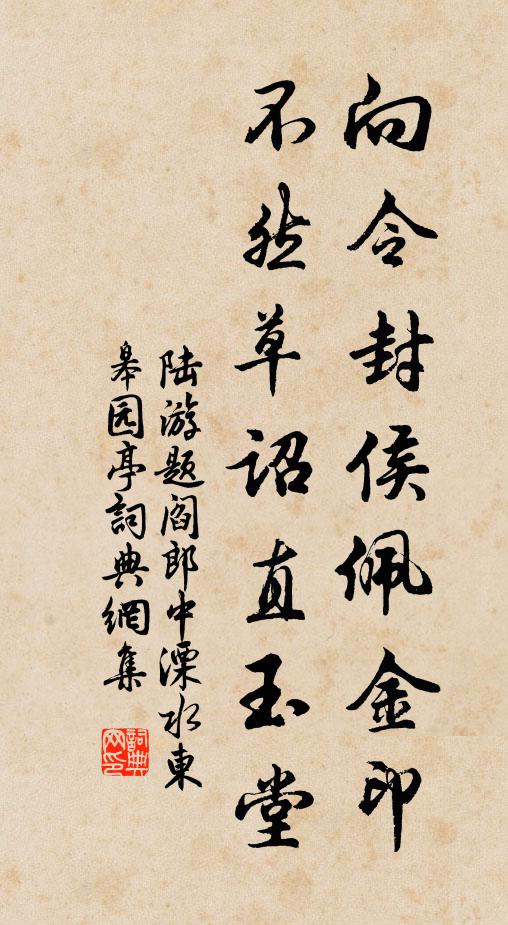 向令封侯佩金印
不然草詔直玉堂
陆游题阎郎中溧水東
皋园亭詞典網集
詞典网印